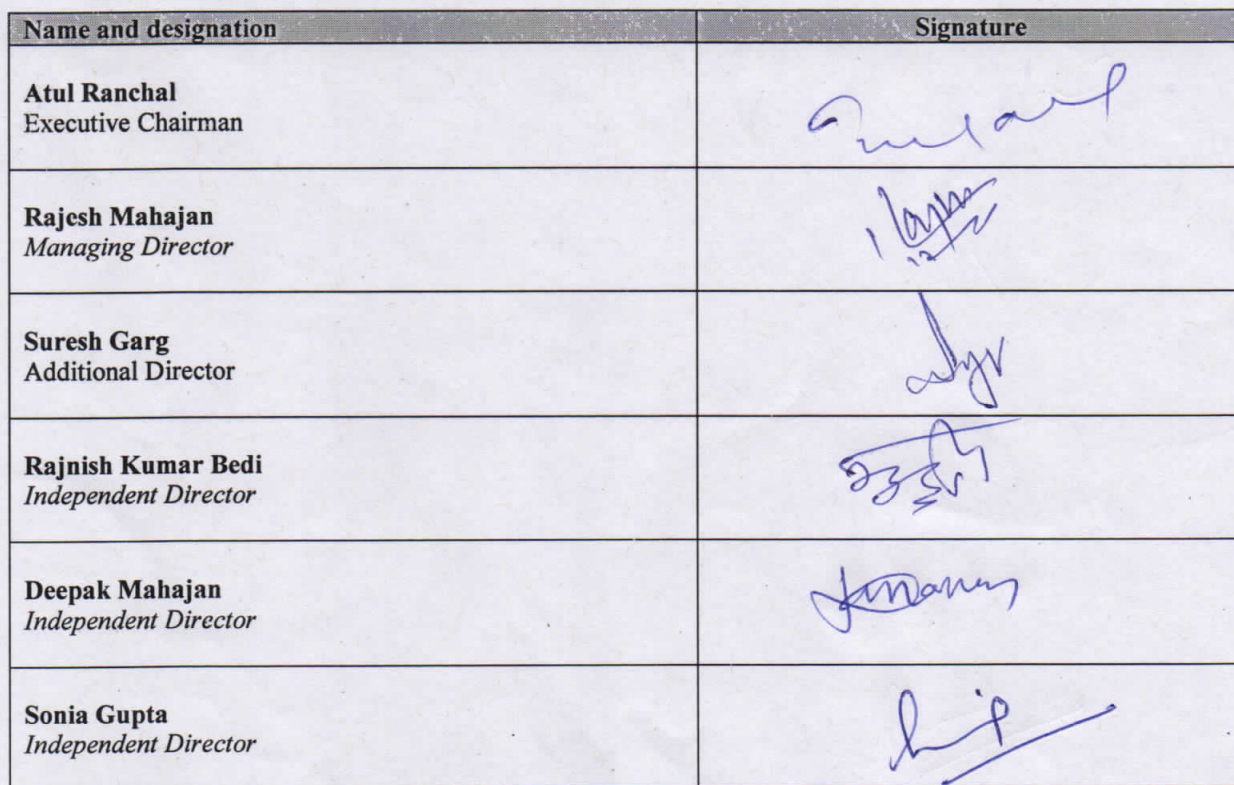 Name and designation Signature
Atul Ranchal
Executive Chairman
Rajesh Mahajan
Managing Director
Suresh Garg
Additional Director
Rajnish Kumar Bedi
Independent Director
Deepak Mahajan
Independent Director
Sonia Gupta
Independent Director